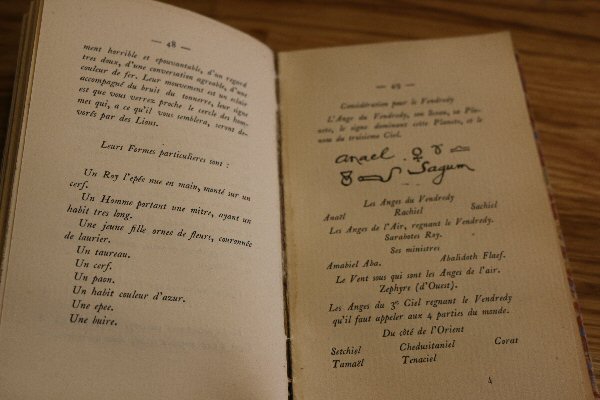 — 48 —
ment horrible et epouvantable, d'un regard
tres doux, d'une conversation agreable, d'une
couleur de fer. Leur mouvement est un eclair
accompagné du bruit du tonnerre, leur signe
est que vous verrez proche le cercle des hom-
mes qui, a ce qu'il vous semblera, seront de-
vorés par des Lions.
Leurs Formes particulieres sont :
Un Roy l'epée nue en main, monté sur un
cerf.
Un Homme portant une mitre, ayant un
habit tres long.
Une jeune fille ornes de fleurs, couronnée
de laurier.
Un taureau.
Un cerf.
Un paon.
Un habit couleur d'azur.
Une epee.
Une buire.
— 49 —
Considération pour le Vendredy
L'Ange du Vendredy, son sceau, sa Pla-
nete, le signe dominant cette Planete, et le
nom du troisième Ciel.
anael ♀ ♉ ♎
Sagum
Les Anges du Vendredy
Anaël Rachiel Sachiel
Les Anges de l'Air, regnant le Vendredy.
Sarabotes Roy.
Ses ministres
Amabiel Aba. Abalidoth Flaef.
Le Vent sous qui sont les Anges de l'air.
Zephyre (d'Ouest).
Les Anges du 3e Ciel regnant le Vendredy
qu'il faut appeler aux 4 parties du monde.
Du côté de l'Orient
Setchiel Chedusitaniel Corat
Tamaël Tenaciel
4